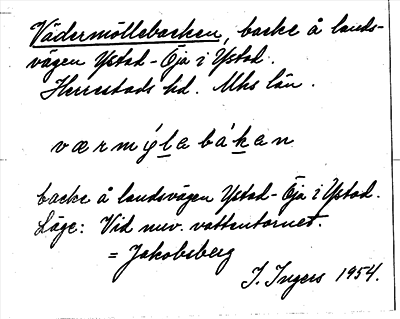 Vädermöllebacken, backe å lands-
vägen Ystad-Öja i Ystad.
Herrestads hd. Mhs län.
værmýlabákan
backe å landsvägen Ystad-Öja i Ystad.
Läge: Vid nuv. vattentornet.
= Jakobsberg
I. Ingers 1954.